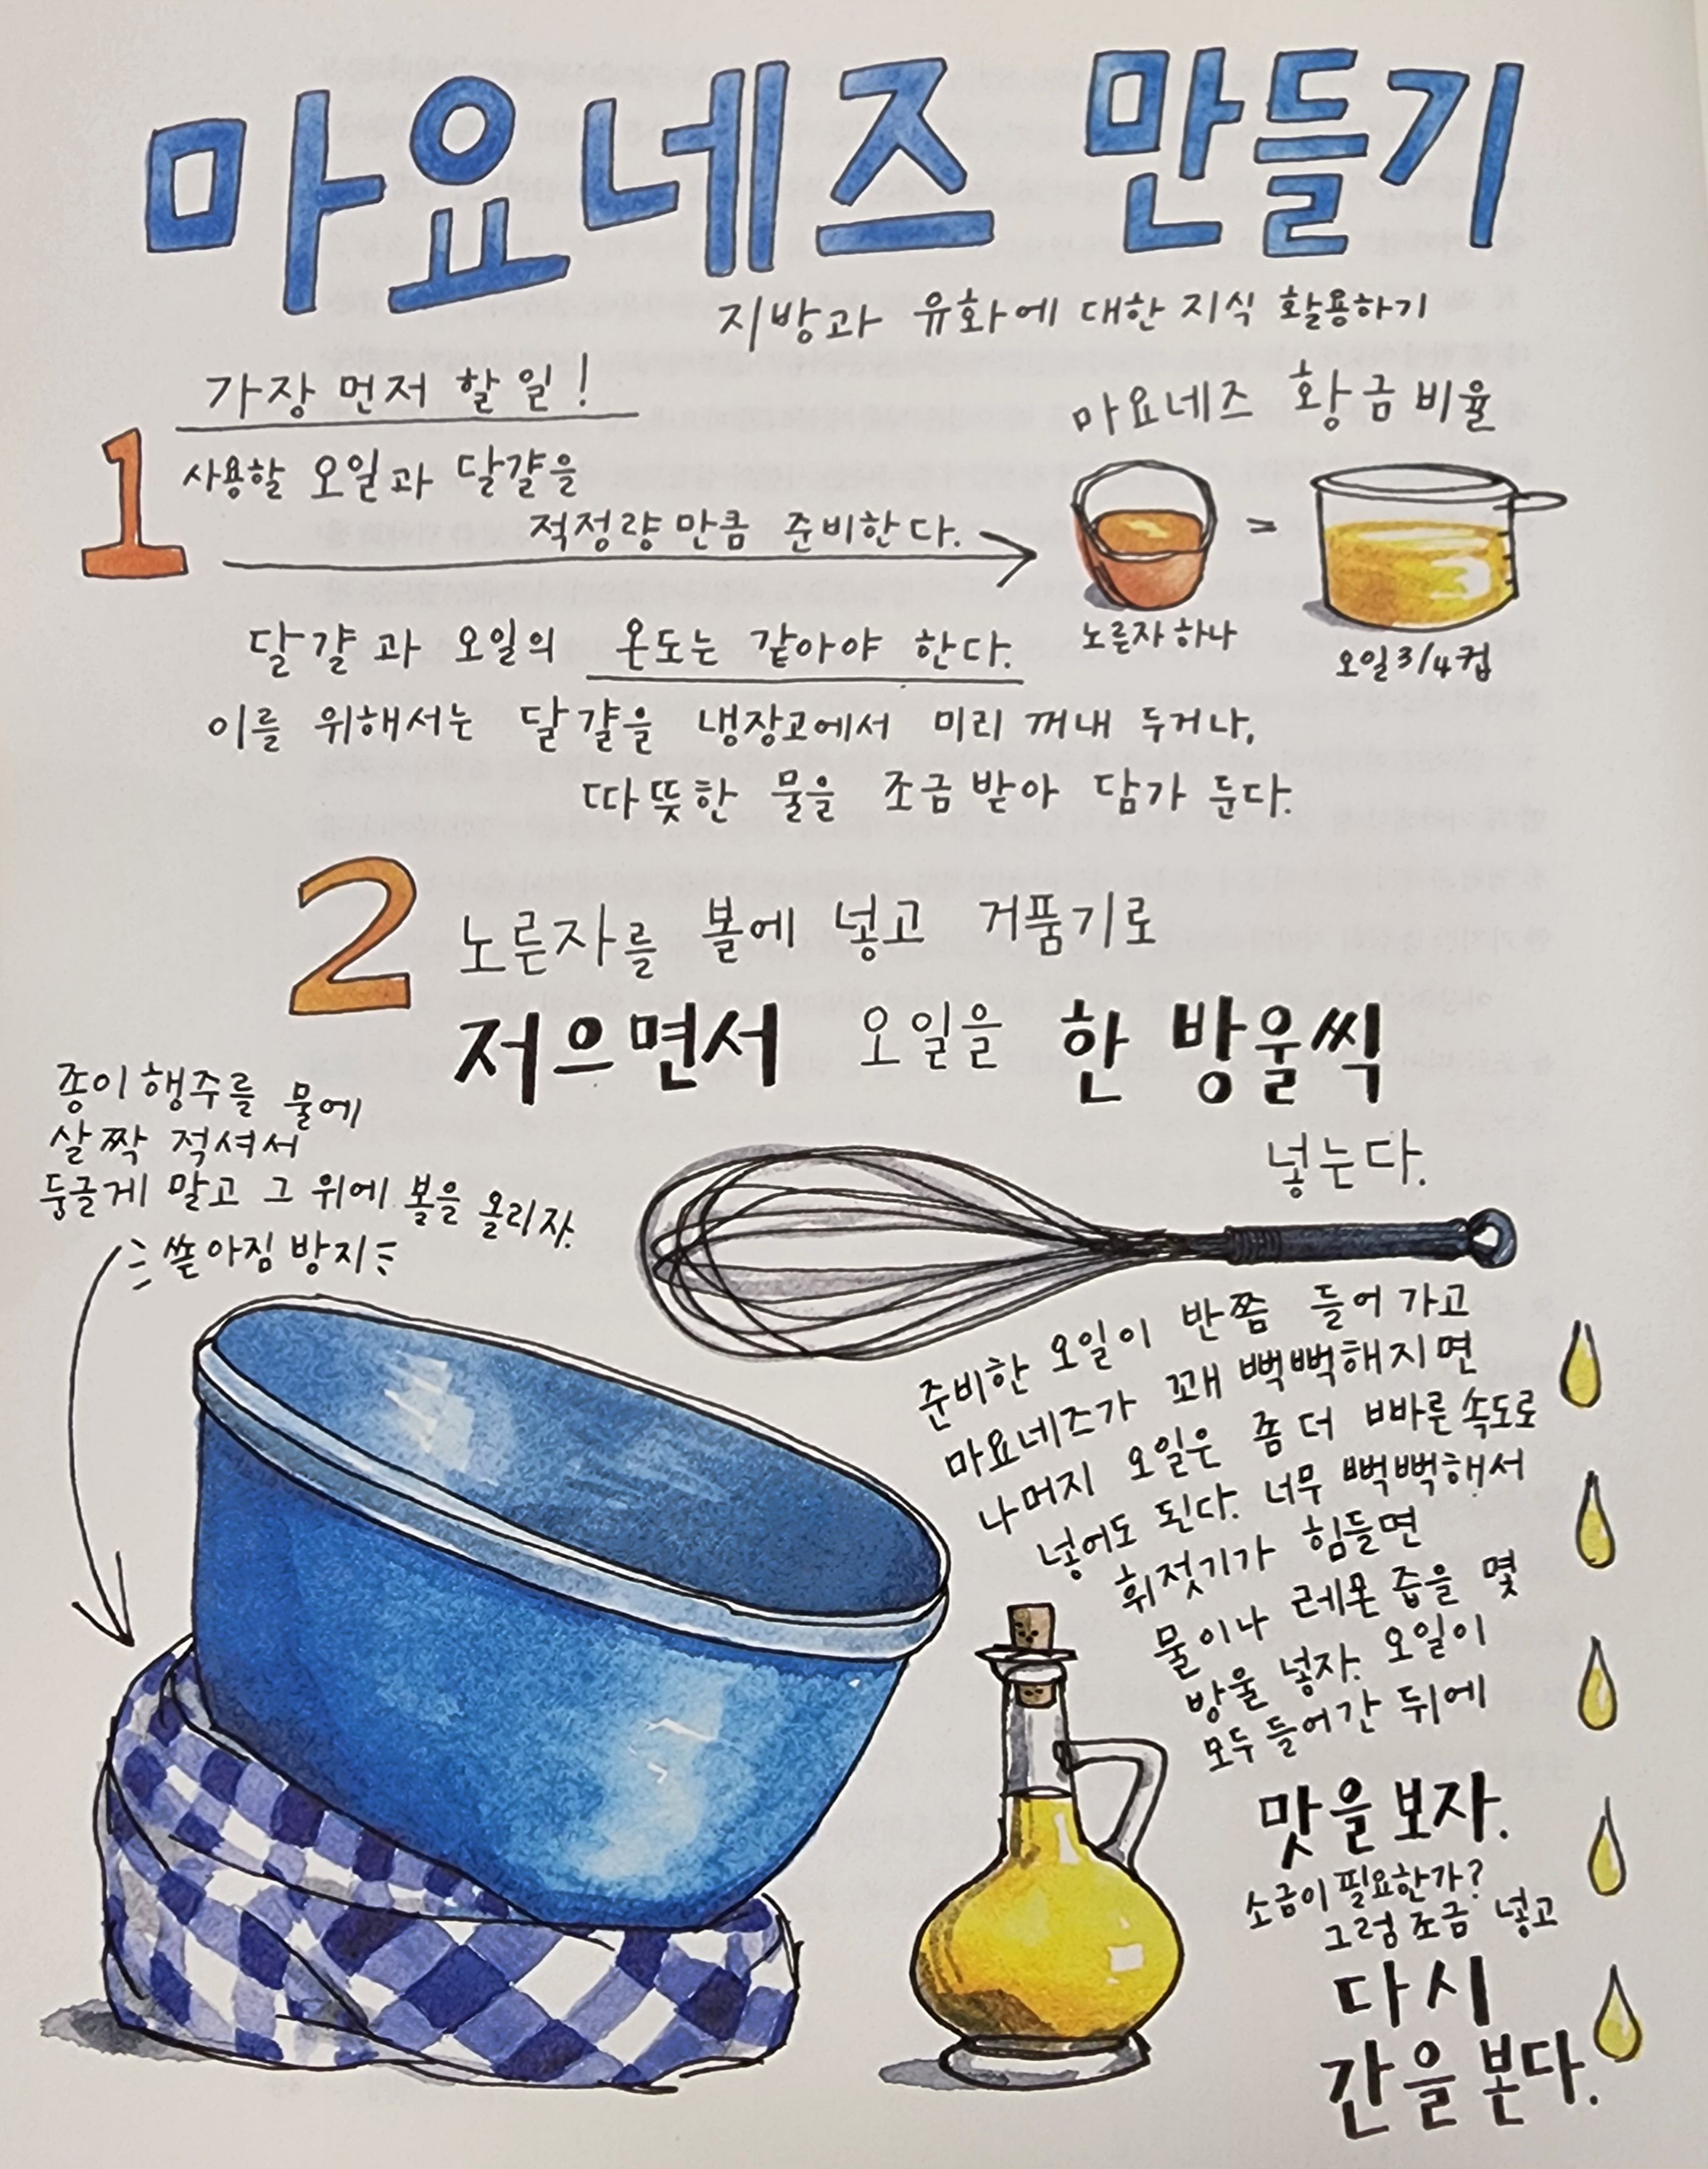 마요네즈 만들기
지방과 유화에 대한 지식 활용하기
1
가장 먼저 할 일!
사용할 오일과 달걀을
적정량 만큼 준비한다.
마요네즈 황금비율
=
노른자 하나
오일 3/4컵
달걀과 오일의 온도는 같아야 한다.
이를 위해서는 달걀을 냉장고에서 미리 꺼내 두거나,
따뜻한 물을 조금 받아 담가 둔다.
2
노른자를 볼에 넣고 거품기로
저으면서 오일을 한 방울씩
넣는다.
종이 행주를 물에
살짝 적셔서
둥글게 말고 그 위에 볼을 올리자.
쏟아짐 방지
준비한 오일이 반쯤 들어 가고
마요네즈가 꽤 뻑뻑해지면
나머지 오일은 좀 더 빠른 속도로
넣어도 된다. 너무 뻑뻑해서
휘젓기가 힘들면
물이나 레몬 즙을 몇
방울 넣자. 오일이
모두 들어간 뒤에
맛을 보자.
소금이 필요한가?
그럼 조금 넣고
다시
간을 본다.